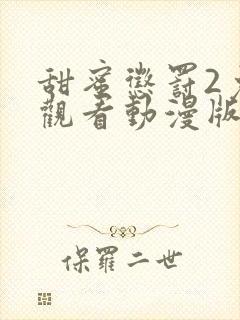 甜蜜懲罰2
觀看動漫版
保羅二世